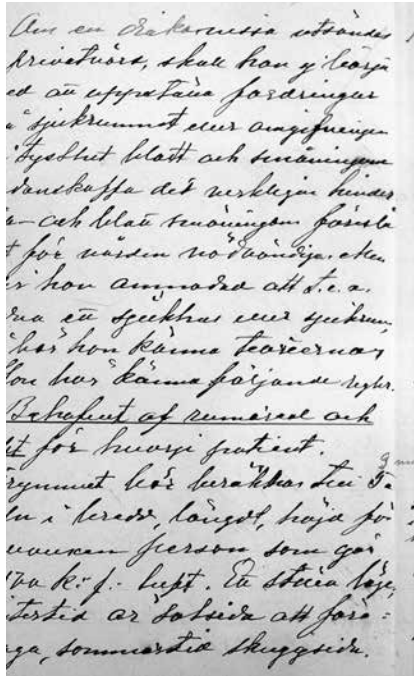 Om en diakonissa utsändes
privatvård, skall hon ej börja
ed att uppställa fordringar
sjukrummet eller omgifningen
tysthet blott och småningom
det verkliga hinder
och blott småningom föreslå
för vården nödvändiga. Men
hon anmodad att t.ex.
en sjukhus eller sjukrum,
bör hon känna teorierna
Hon bör känna följande regler.
Behofvet af rumsred och
för hvarje patient.
rymmet bör beräknas till
i bredd, längd, höjd för
person som går
k: f: luft. En stilla läge,
tertid är solsida att före=
ga, sommartid skuggsida.